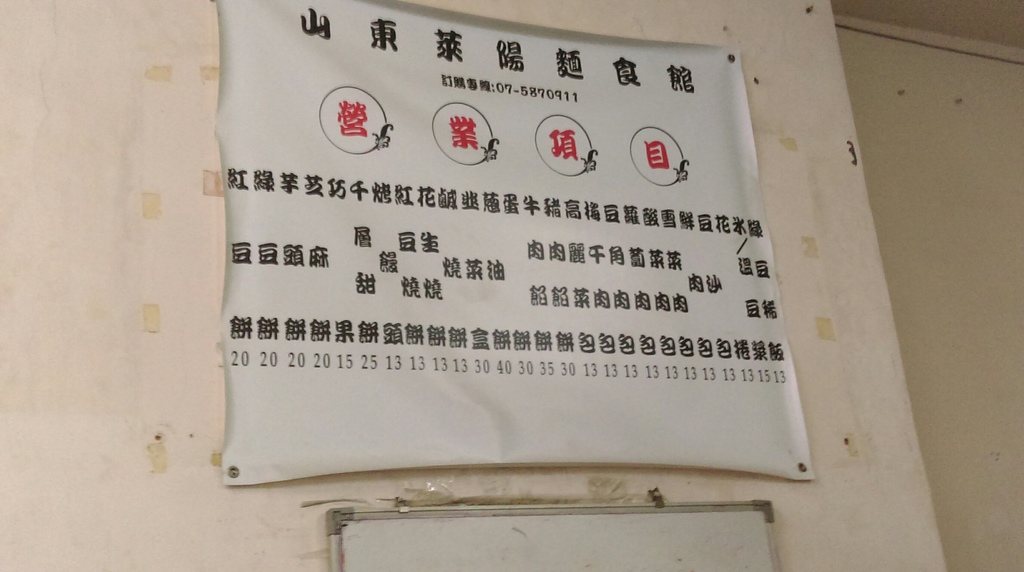 山東萊陽麵食館
訂購專線:07-5870911
營業項目
紅豆餅 20
綠豆餅 20
芋頭餅 20
芝麻餅 20
巧果 15
千層甜餅 25
烤饅頭 13
紅豆燒餅 13
花生燒餅 13
鹹燒餅 13
韭菜盒 30
蔥油餅 40
蛋餅 30
牛肉餡餅 35
豬肉餡餅 30
高麗菜包 13
梅干肉包 13
豆角肉包 13
蘿蔔肉包 13
酸菜肉包 13
雪菜肉包 13
鮮肉包 13
豆沙包 13
花捲 13
冰/溫豆漿 15
綠豆稀飯 13